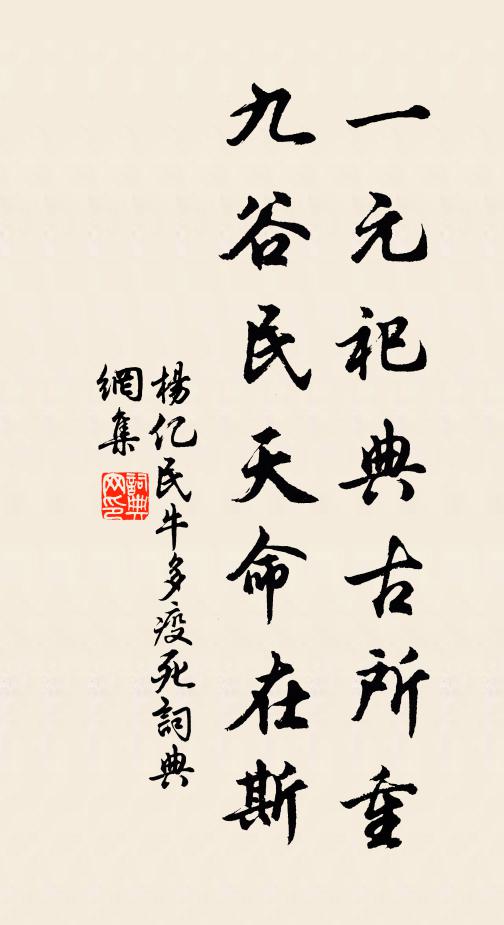 一元祀典古所重
九谷民天命在斯
楊亿民牛多疫死詞典
網集
詞典网印